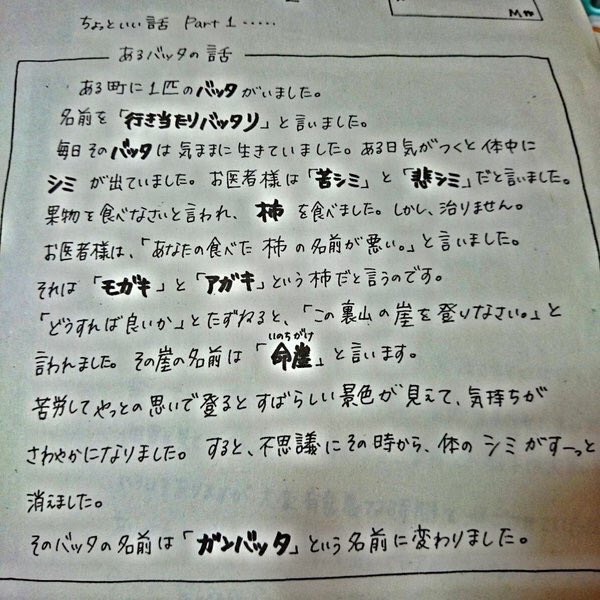 Mの
ちょっといい話 Part 1 ‥‥‥
あるバッタの話
ある町に1匹のバッタがいました。
名前を「行き当たりバッタリ」と言いました。
毎日そのバッタは気ままに生きていました。ある日気がつくと体中に
シミが出ていました。お医者様は「苦シミ」と「悲シミ」だと言いました。
果物を食べなさいと言われ、柿を食べました。しかし、治りません。
お医者様は、「あなたの食べた柿の名前が悪い。」と言いました。
それは「モガキ」と「アガキ」という柿だと言うのです。
「どうすれば良いか」とたずねると、「この裏山の崖を登りなさい。」と
言われました。その崖の名前は「命崖」と言います。
いのちがけ
苦労してやっとの思いで登るとすばらしい景色が見えて、気持ちが
さわやかになりました。すると、不思議にその時から、体のシミがすーっと
消えました。
そのバッタの名前は「ガンバッタ」という名前に変わりました。